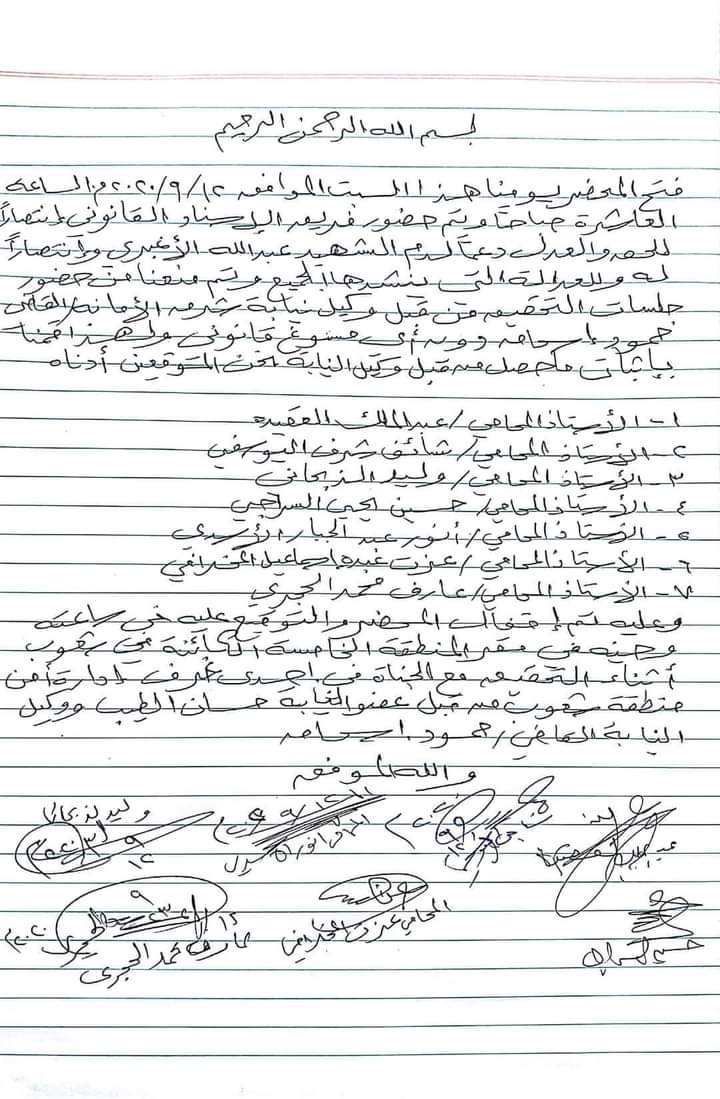 بسم الله الرحمن الرحيم
فتح المحضر يومنا هذا السبت الموافق ١٢/٩/٢٠٢٠م الساعة
العاشرة صباحاً وتم حضور فريق الإسناد القانوني إنتصاراً
للحق والعدل دعماً لدم الشهيد عبدالله الأغبري وإنتصاراً
له وللعدالة التي ينشدها الجميع وتم منعنا من حضور
جلسات التحقيق من قبل وكيل نيابة شرق الأمانة القاضي
حمود إسحاق دون أي مسوغ قانوني ولهذا قمنا
بإثبات ما حصل من قبل وكيل النيابة نحن الموقعين أدناه
١- الأستاذ المحامي/ عبدالملك العقيده
٢- الأستاذ المحامي/ شائق شرف اليوسفي
٣- الأستاذ المحامي/ وليد الذبحاني
٤- الأستاذ المحامي/ حسين يحي السراجي
٥- الأستاذ المحامي/ أنور عبدالجبار الأسدي
٦- الأستاذ المحامي/ عزت عبده إسماعيل المخدافي
٧- الأستاذ المحامي/ عارف محمد الحجري
وعليه تم إقفال المحضر والتوقيع عليه في ساعته
وحينه في مقر المنطقة الخامسة الكائنة في شعوب
أثناء التحقيق مع الجناة في احدى غرف إدارة أمن
منطقة شعوب من قبل عضو النيابة حسان الطيب ووكيل
النيابة القاضي/ حمود إسحاق
والله الموفق
المحامي عزت المخدافي
عارف محمد الحجري